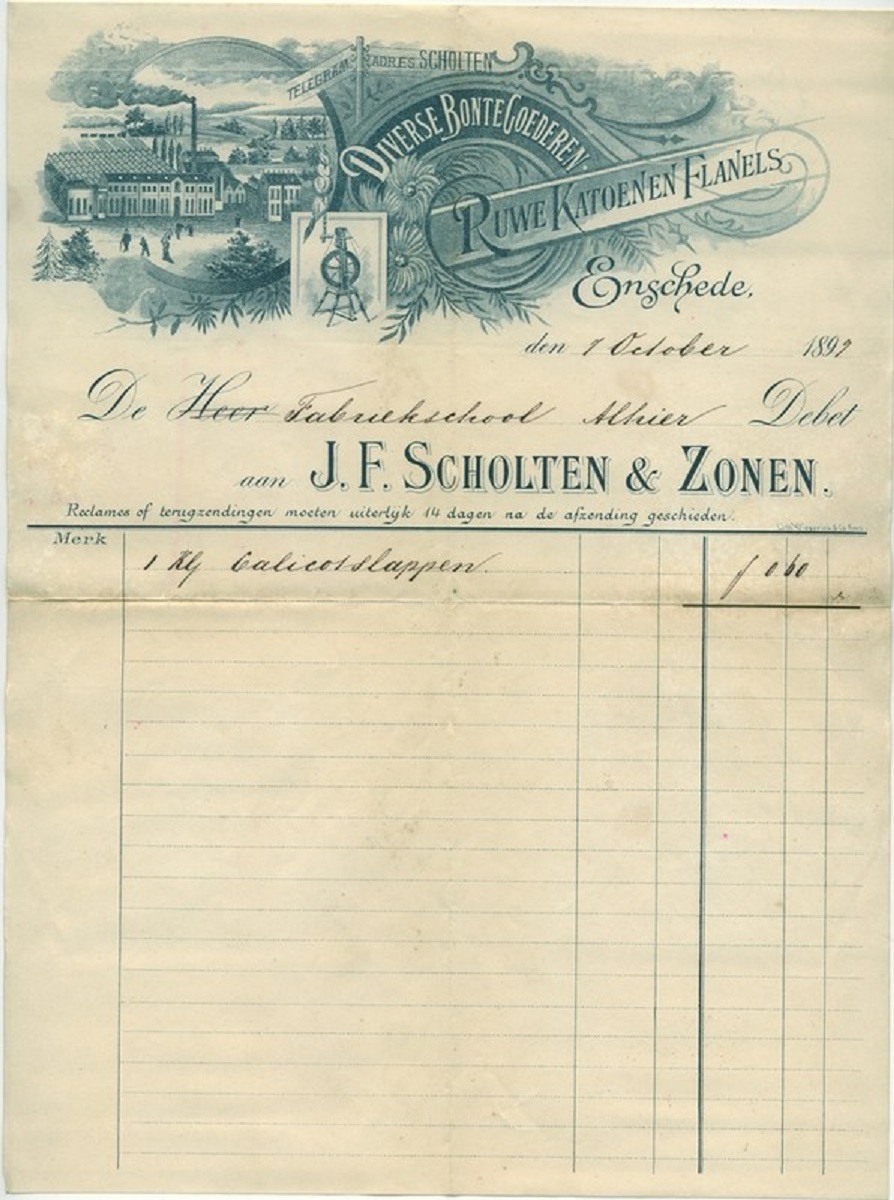 TELEGRAM ADRES SCHOLTEN
DIVERSE BONTE GOEDEREN.
RUWE KATOENEN FLANELS
Enschede,
den 7 October 1897
De Heer Fabriekschool Alhier Debet
aan J. F. SCHOLTEN & ZONEN.
Reclames of terugzendingen moeten uiterlijk 14 dagen na de afzending geschieden.
Merk
1 Kg Calicotslappen. f 0 60